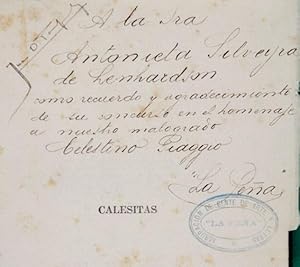 A la Sra
Antonieta Silveyra
de Lenhardson
como recuerdo y agradecimiento
de su concurso en el homenaje
a nuestro malogrado
Celestino Piaggio
"La Peña"
CALESITAS
AGRUPACION DE GENTE DE ARTE Y LETRAS
"LA PEÑA"